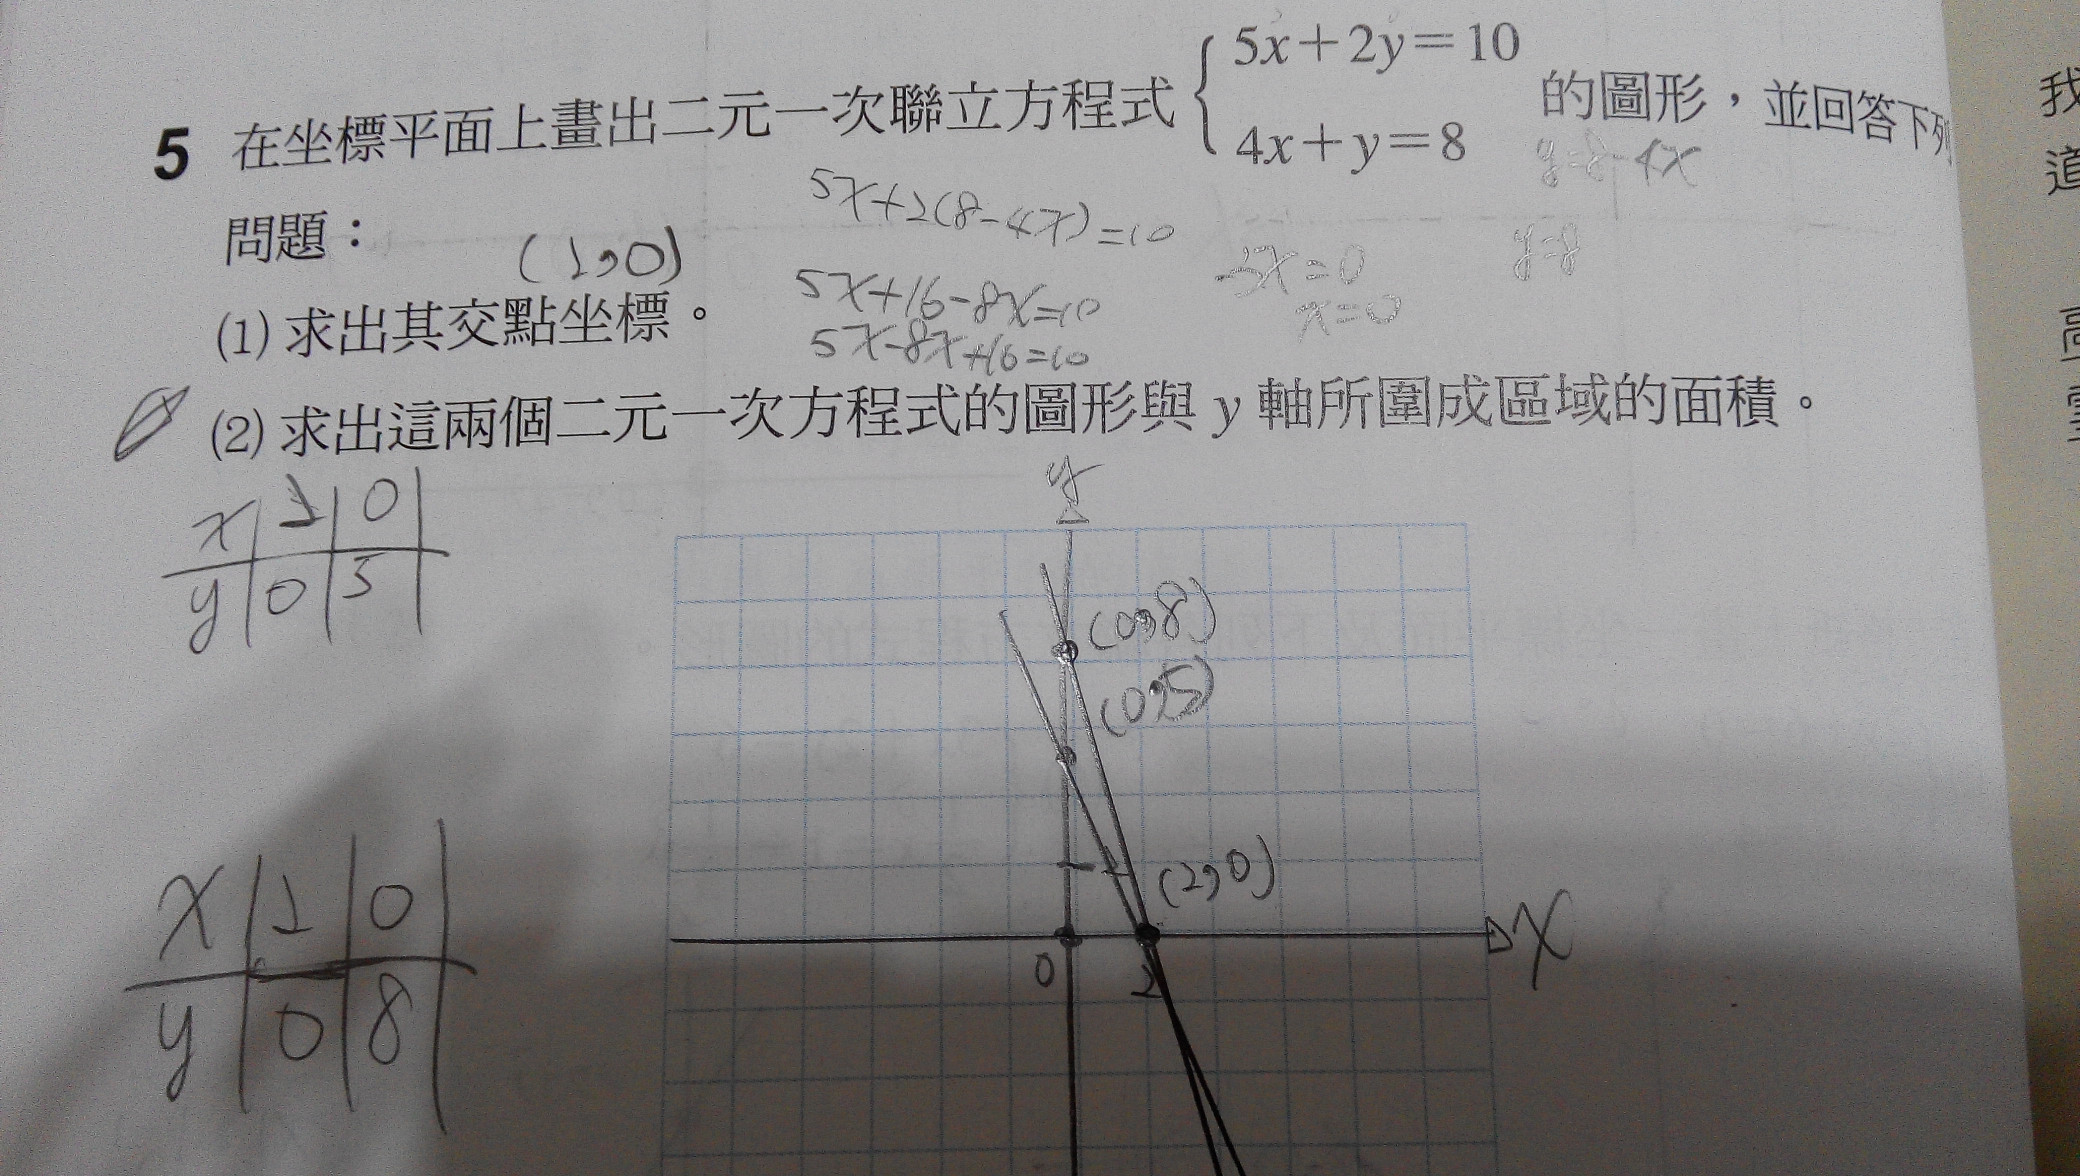 5 在坐標平面上畫出二元一次聯立方程式 { 5x+2y=10
4x+y=8 的圖形，並回答下列
y=8-4x
問題：
5x+2(8-4x)=10
(2,0)
5x+16-8x=10
-3x=0
y=8
(1) 求出其交點坐標。
5x-8x+16=10
x=0
(2) 求出這兩個二元一次方程式的圖形與 y 軸所圍成區域的面積。
x 2 0
y 0 5
y
(0,8)
(0,5)
x 2 0
y 0 8
(2,0)
0 2 x
我
道